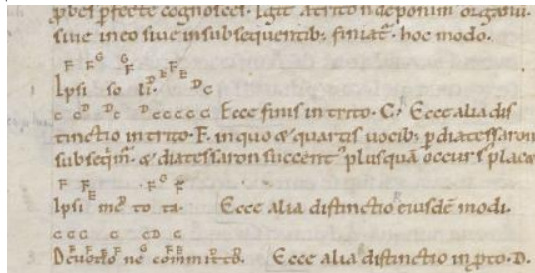 p̱bes p̱fecte cognosces. Igit̃ a trito n̄ deponim̃ organū.
siue in eo siue in subsequentib; finiat̃. hoc modo.
F F G G F F E D C
Ipsi so li.
C C D D C D C C C C C Ecce finis in trito. C. Ecce alia dis
tinctio in trito. F. in quo & quartis uocib; p̱ diatessaron
subseq̃m̃. & diatessaron succent᷒ plusquā occursᷤ placet
F F E F G F
Ipsi me to ta. Ecce alia distinctio eiusdē modi.
C C C C C D C
Deuoto ne committo. Ecce alia distinctio in p̱to. D.